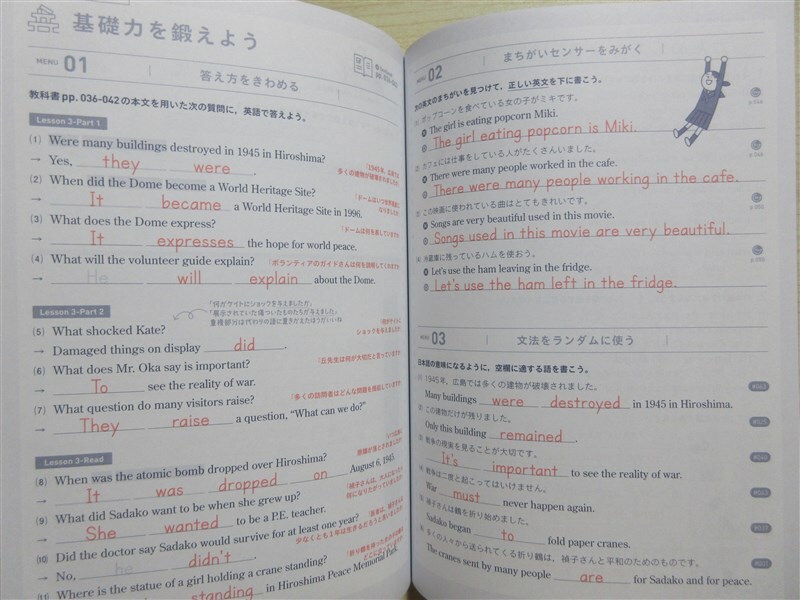 基礎力を鍛えよう
MENU 01 答え方をきわめる
教科書pp. 036-042の本文を用いた次の質問に，英語で答えよう。
Lesson 3-Part 1
(1) Were many buildings destroyed in 1945 in Hiroshima?
→ Yes, they were.
(2) When did the Dome become a World Heritage Site?
→ It became a World Heritage Site in 1996.
(3) What does the Dome express?
→ It expresses the hope for world peace.
(4) What will the volunteer guide explain?
→ He will explain about the Dome.
Lesson 3-Part 2
(5) What shocked Kate?
→ Damaged things on display did.
(6) What does Mr. Oka say is important?
→ To see the reality of war.
(7) What question do many visitors raise?
→ They raise a question, "What can we do?"
Lesson 3-Read
(8) When was the atomic bomb dropped over Hiroshima?
→ It was dropped on August 6, 1945.
(9) What did Sadako want to be when she grew up?
→ She wanted to be a P.E. teacher.
(10) Did the doctor say Sadako would survive for at least one year?
→ No, he didn't.
(11) Where is the statue of a girl holding a crane standing?
standing in Hiroshima Peace Memorial Park.
MENU 02 まちがいセンサーをみがく
次の英文のまちがいを見つけて，正しい英文を下に書こう。
ポップコーンを食べている女の子がミキです。
The girl is eating popcorn Miki.
The girl eating popcorn is Miki.
カフェには仕事をしている人がたくさんいました。
There were many people worked in the cafe.
There were many people working in the cafe.
この映画に使われている曲はとてもきれいです。
Songs are very beautiful used in this movie.
Songs used in this movie are very beautiful.
冷蔵庫に残っているハムを使おう。
Let's use the ham leaving in the fridge.
Let's use the ham left in the fridge.
MENU 03 文法をランダムに使う
日本語の意味になるように，空欄に適する語を書こう。
1945年，広島では多くの建物が破壊されました。
Many buildings were destroyed in 1945 in Hiroshima.
この建物だけが残りました。
Only this building remained.
戦争の現実を見ることが大切です。
It's important to see the reality of war.
戦争は二度と起こってはいけません。
War must never happen again.
禎子さんは鶴を折り始めました。
Sadako began to fold paper cranes.
多くの人々から送られてくる折り鶴は，禎子さんと平和のためのものです。
The cranes sent by many people are for Sadako and for peace.